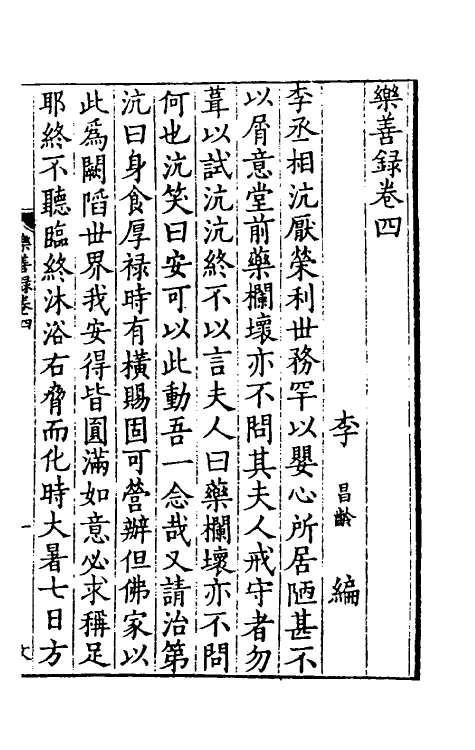 樂善録卷四
李昌齡編
李丞相沆厭榮利世務罕以嬰心所居陋甚不
以屑意堂前藥欄壞亦不問其夫人戒守者勿
葺以試沆沆終不以言夫人曰藥欄壞亦不問
何也沆笑曰安可以此動吾一念哉又請治第
沆曰身食厚禄時有横賜固可營辦但佛家以
此爲闕䧟世界我安得皆圓滿如意必求稱足
耶終不聽臨終沐浴右脅而化時大暑七日方
樂善録卷四
一